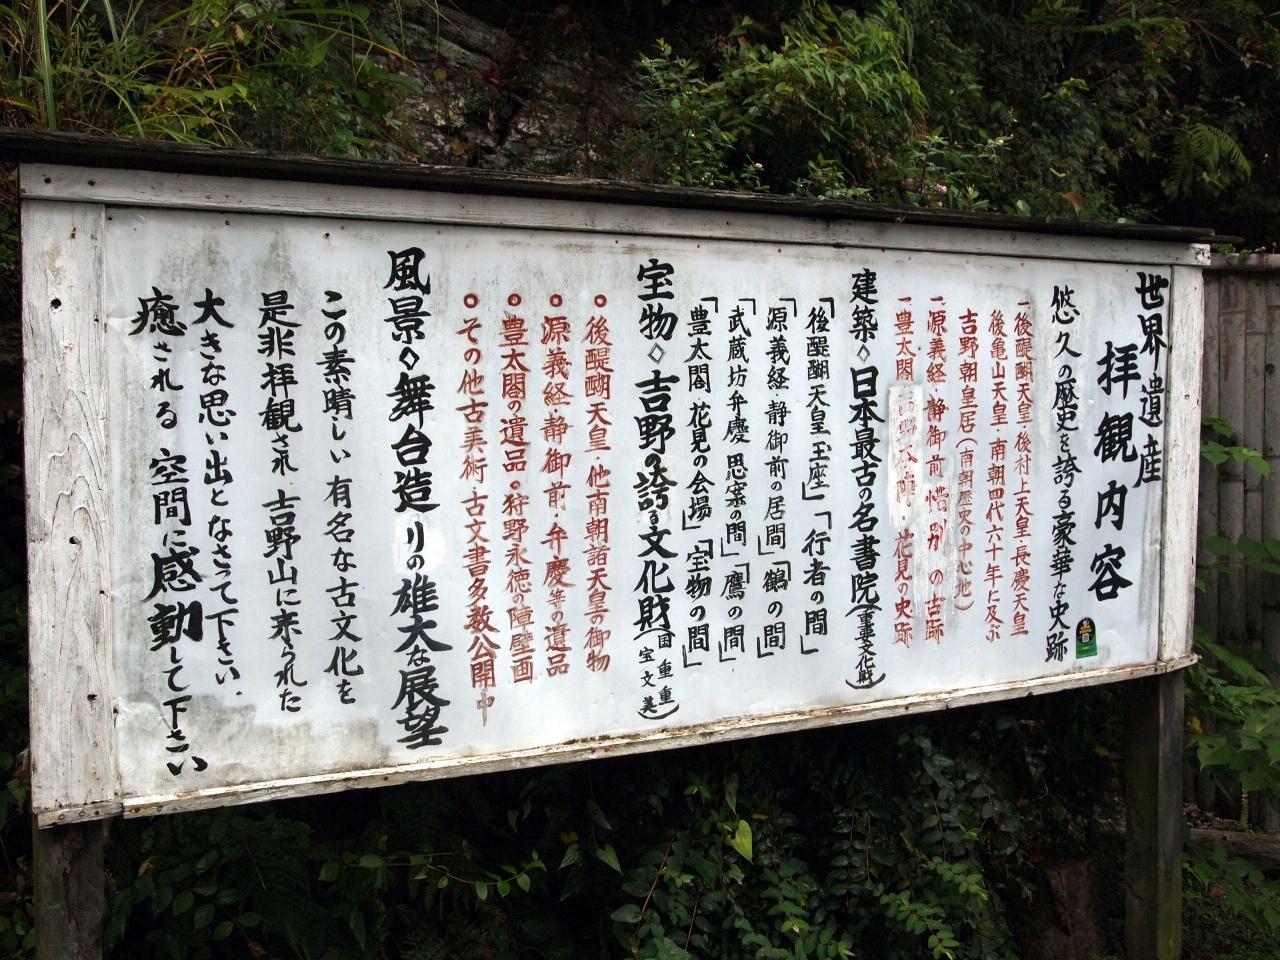 世界遺産
拝観内容
悠久の歴史を誇る豪華な史跡
一後醍醐天皇・後村上天皇・長慶天皇
後亀山天皇 南朝四代六十年に及ぶ
吉野朝皇居(南朝歴史の中心地)
一源義経・静御前 惜別の古跡
一豊太閤 吉野本陣・花見の史跡
建築◇日本最古の名書院(重要文化財)
「後醍醐天皇玉座」「行者の間」
「源義経・静御前の居間」「鶴の間」
「武蔵坊弁慶 思案の間」「鷹の間」
「豊太閤 花見の会場」「宝物の間」
宝物◇吉野の誇る文化財(国宝 重文 重美)
○後醍醐天皇・他南朝諸天皇の御物
○源義経・静御前・弁慶等の遺品
○豊太閤の遺品○狩野永徳の障壁画
○その他古美術 古文書多数公開中
風景◇舞台造りの雄大な展望
この素晴しい有名な古文化を
是非拝観され 吉野山に来られた
大きな思い出となさって下さい.
癒される空間に感動して下さい